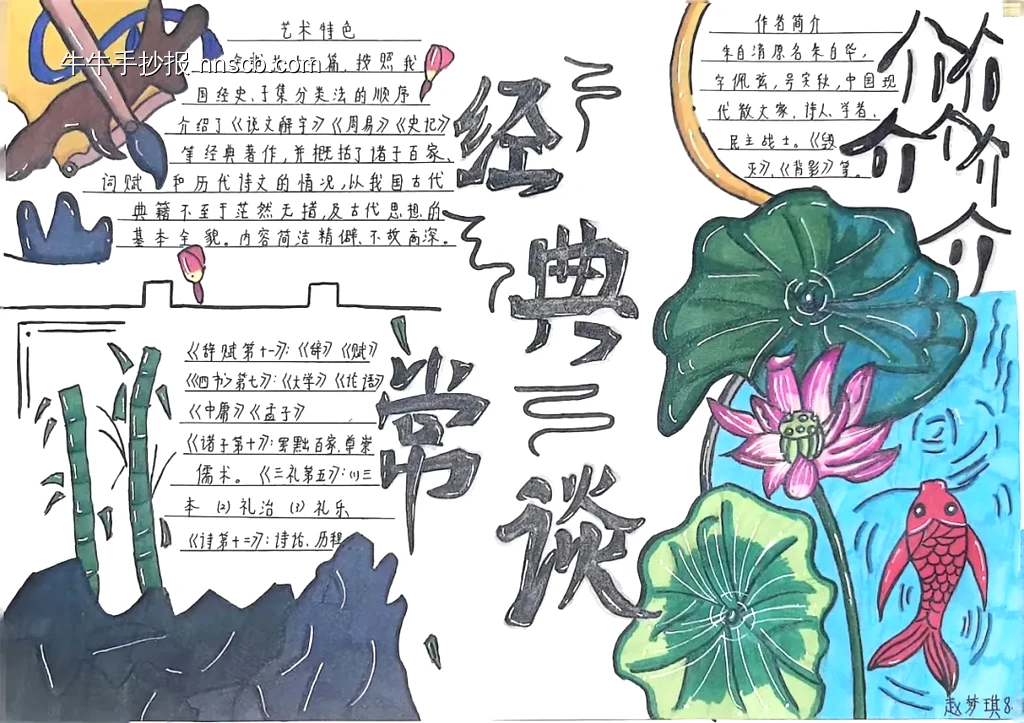 艺术特色
牛牛手抄报 nnscb.com
篇、按照我
国经史、子集分类法的顺序
介绍了《说文解字》《周易》《史记》
等经典著作,并概括了诸子百家、
词赋 和历代诗文的情况,以我国古代
典籍不至于茫然无措,及古代思想的
基本全貌。内容简洁精僻、不故高深。
《辞赋第十一》:《辞》《赋》
《四书》第七》:《大学》《论语》
《中庸》《孟子》
《诸子第十》:罢黜百家、尊崇
儒术。《三礼第五》:(1)三
本 (2)礼治 (3)礼乐
《诗第十二》:诗话、历程
经典常谈
作者简介
朱自清原名朱自华,
字佩弦,号实秋,中国现
代散文家、诗人、学者、
民主战士。《毁
灭》、《背影》等。
赵梦琪8.